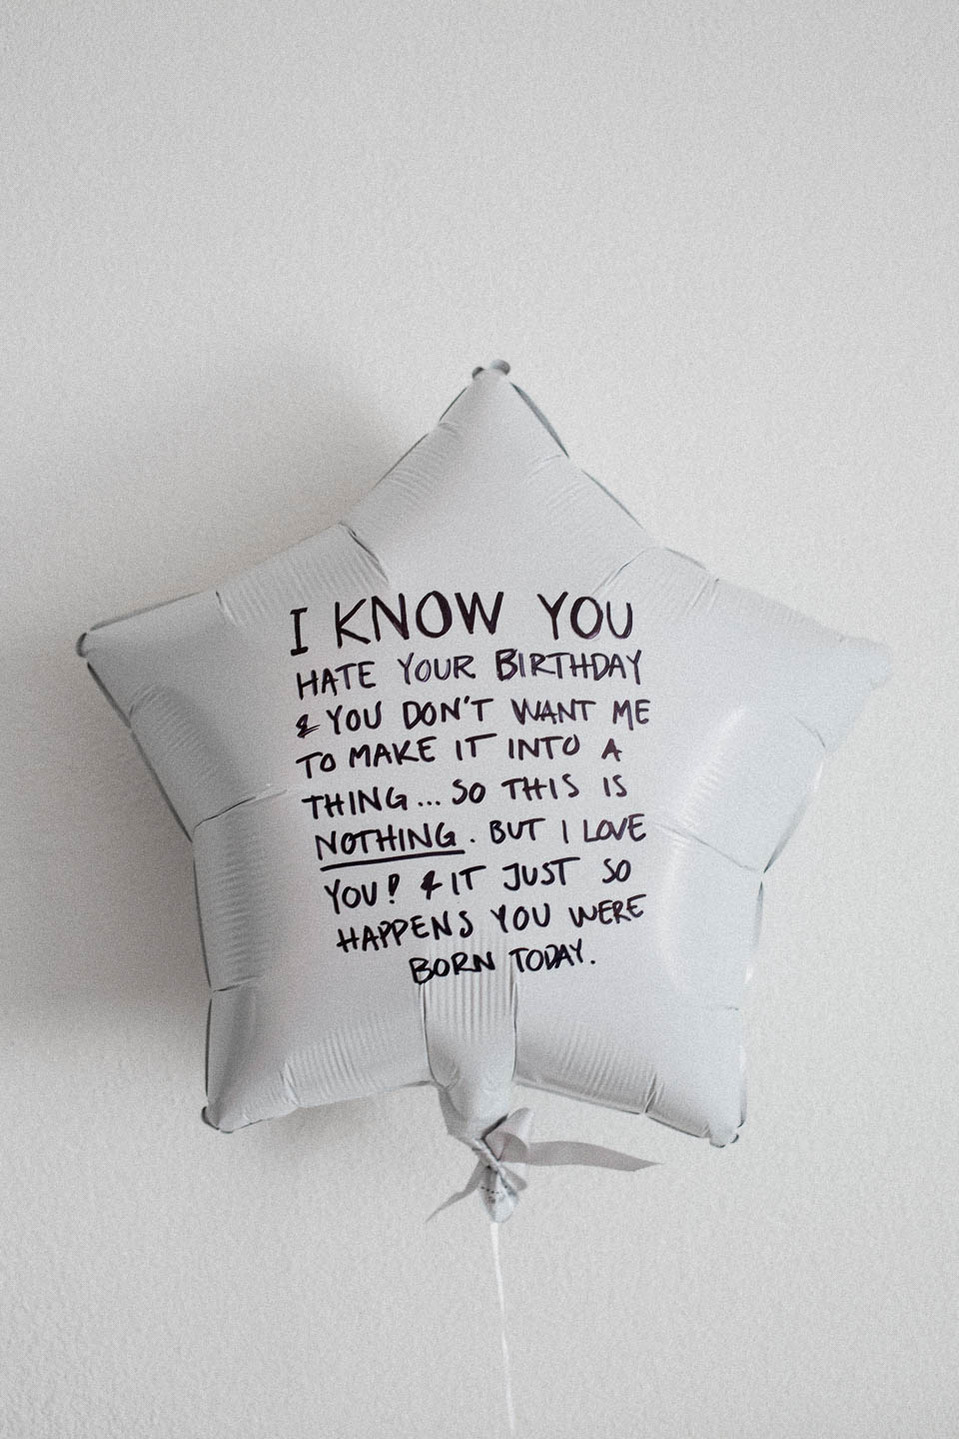 I KNOW YOU
HATE YOUR BIRTHDAY
& YOU DON'T WANT ME
TO MAKE IT INTO A
THING... SO THIS IS
NOTHING. BUT I LOVE
YOU! & IT JUST SO
HAPPENS YOU WERE
BORN TODAY.